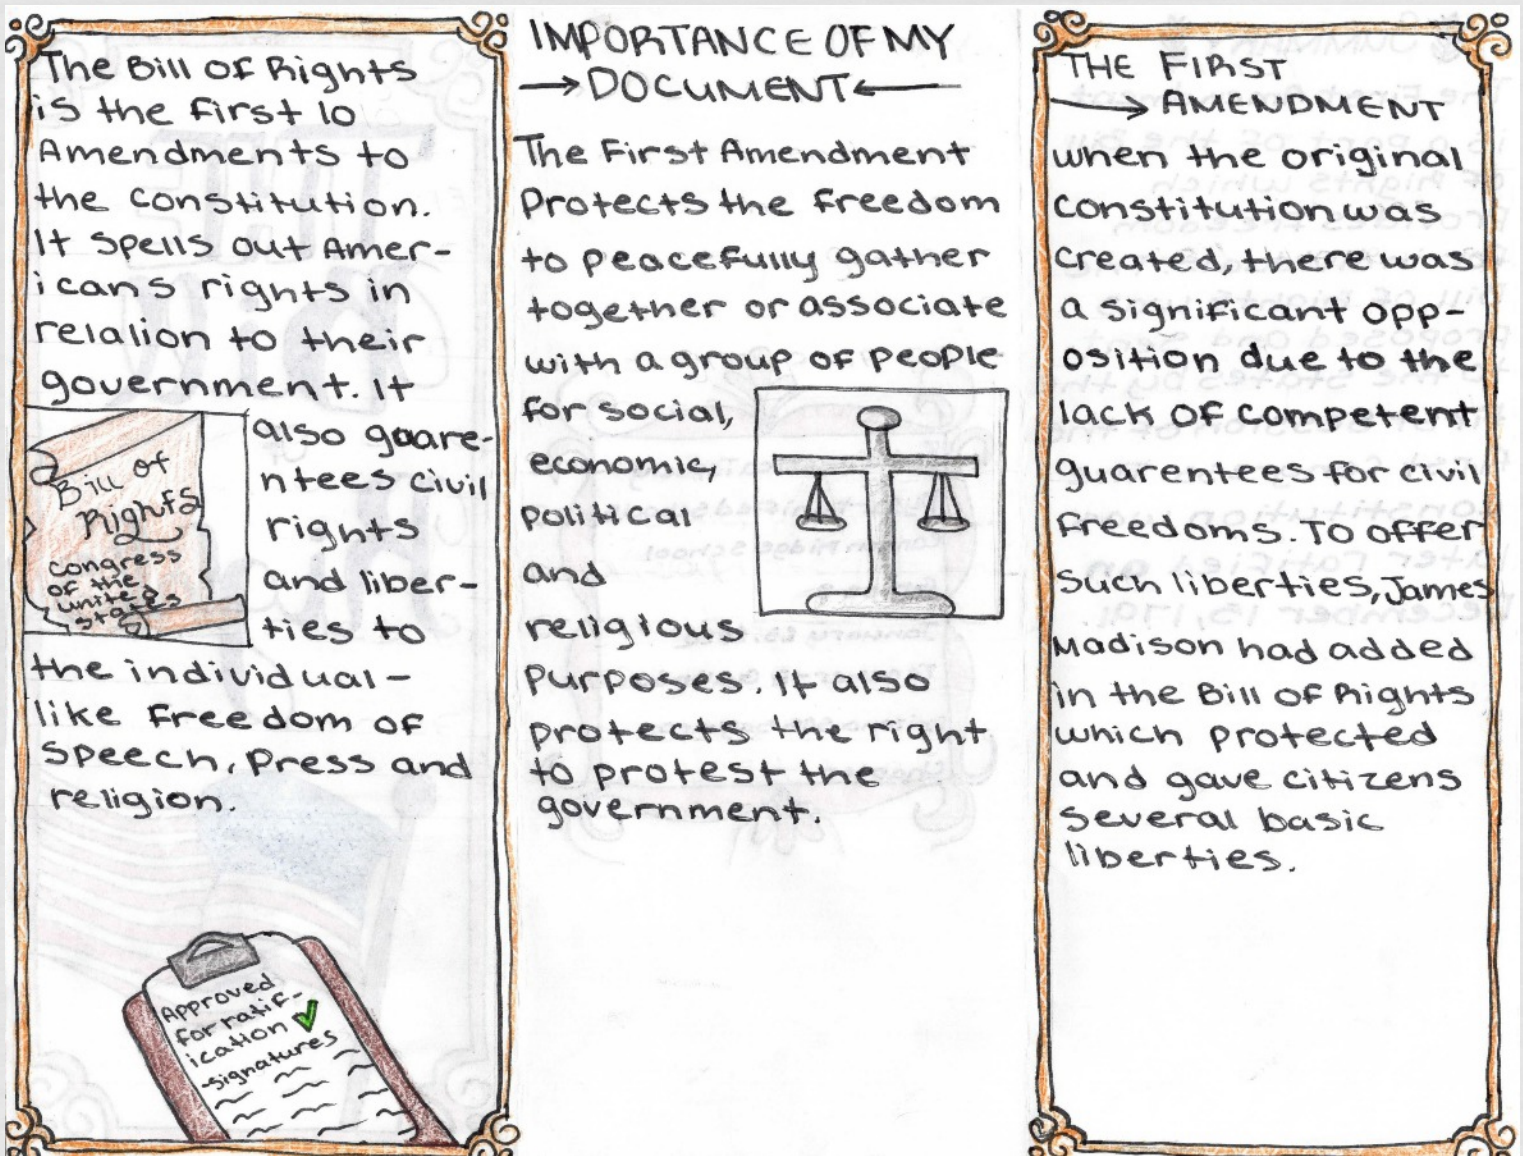 The Bill of Rights
is the first 10
Amendments to
the constitution.
It spells out Amer-
icans rights in
relalion to their
government. It
also guare-
ntees civil
rights
and liber-
ties to
the individual-
like freedom of
speech, press and
religion.
Bill of
Rights
congress
of the
united
states
Approved
for ratif-
ication
-signatures
IMPORTANCE OF MY
DOCUMENT
The First Amendment
Protects the freedom
to peacefully gather
together or associate
with a group of people
for social,
economic,
political
and
religious
purposes. It also
protects the right
to protest the
government.
THE FIRST
AMENDMENT
when the original
constitution was
created, there was
a significant opp-
osition due to the
lack of competent
guarentees for civil
freedoms. To offer
such liberties, James
Madison had added
in the Bill of Rights
which protected
and gave citizens
several basic
liberties.